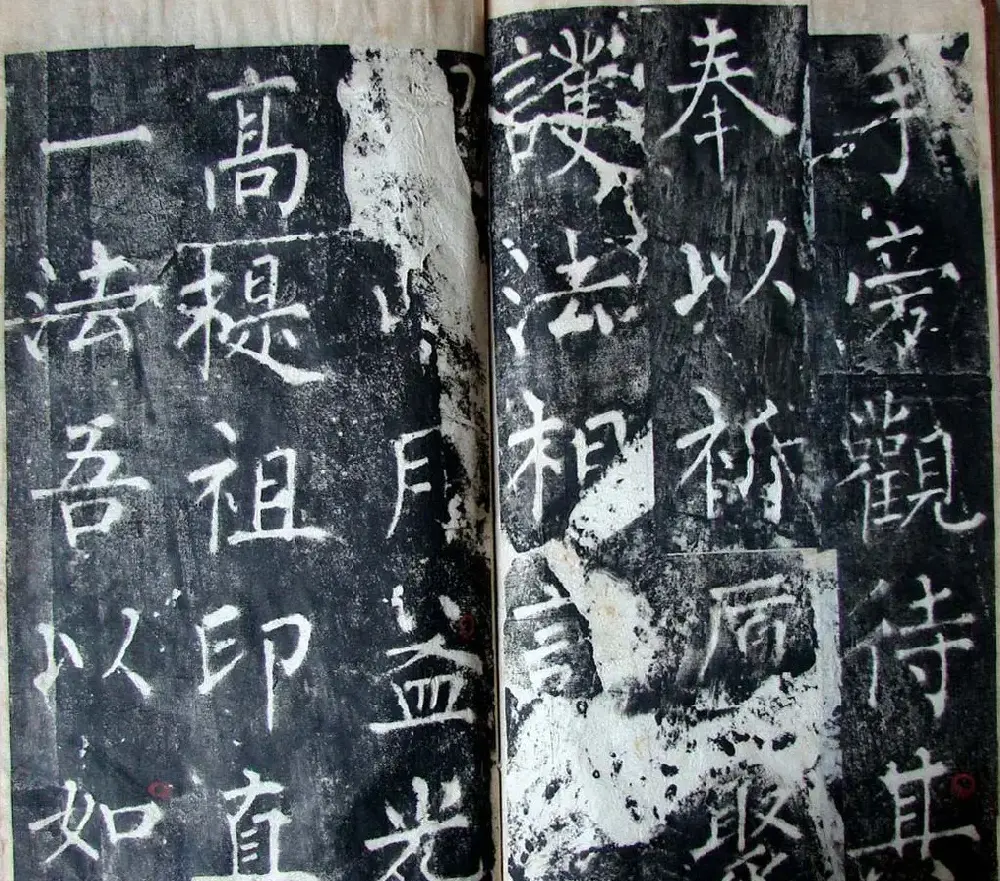 手旁觀待其
奉以祈聚
護法相言
月益光
高提祖印直
一法吾以如